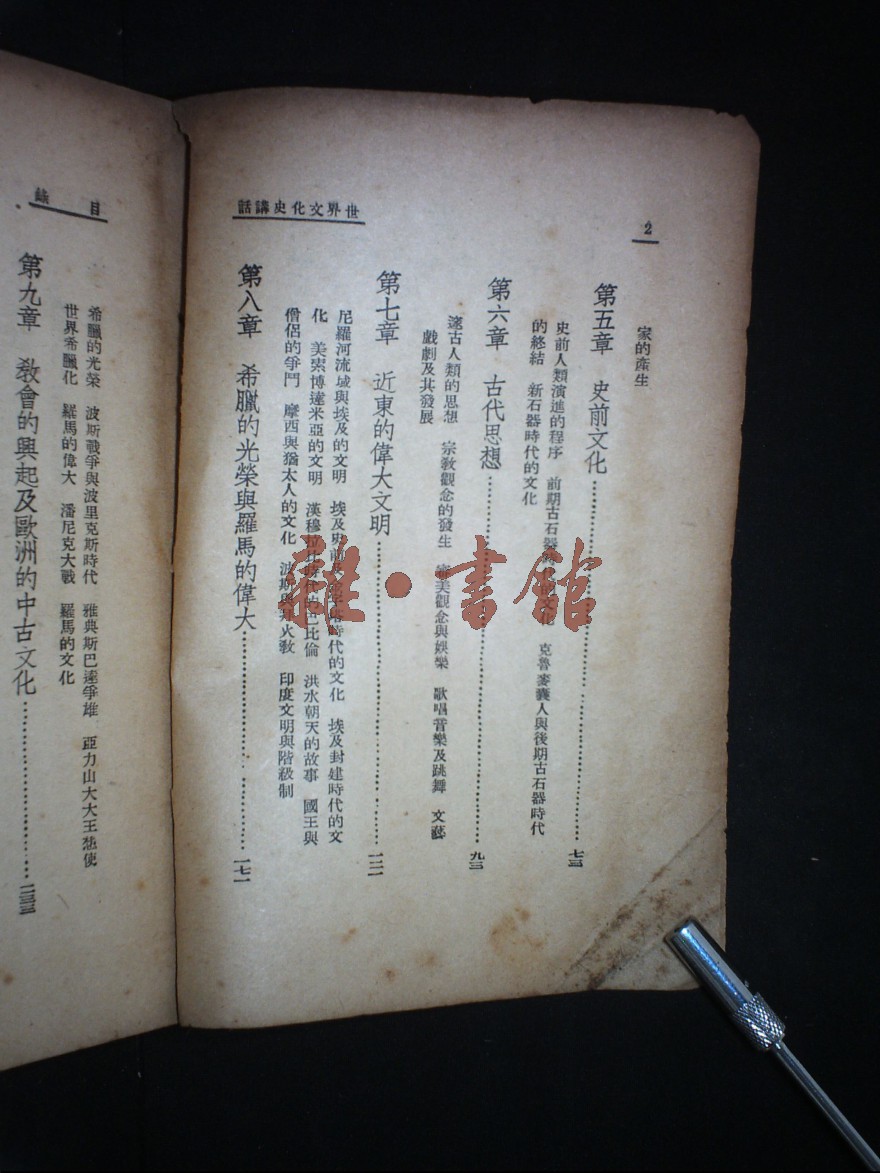 2
世界文化史講話
家的產生
第五章 史前文化 七三
史前人類演進的程序 前期古石器時代的文化 克魯麥囊人與後期古石器時代
的終結 新石器時代的文化
第六章 古代思想 九三
邃古人類的思想 宗教觀念的發生 審美觀念與娛樂 歌唱音樂及跳舞 文藝
戲劇及其發展
第七章 近東的偉大文明
尼羅河流域與埃及的文明 埃及史前及金字塔時代的文化 埃及封建時代的文
化 美索博達米亞的文明 漢穆拉比時代的巴比倫 洪水朝天的故事 國王與
僧侶的爭鬥 摩西與猶太人的文化 波斯與拜火教 印度文明與階級制
第八章 希臘的光榮與羅馬的偉大 一七一
目錄
希臘的光榮 波斯戰爭與波里克斯時代 雅典斯巴達爭雄 亞力山大大王想使
世界希臘化 羅馬的偉大 潘尼克大戰 羅馬的文化
第九章 教會的興起及歐洲的中古文化 二三三
雜·書館